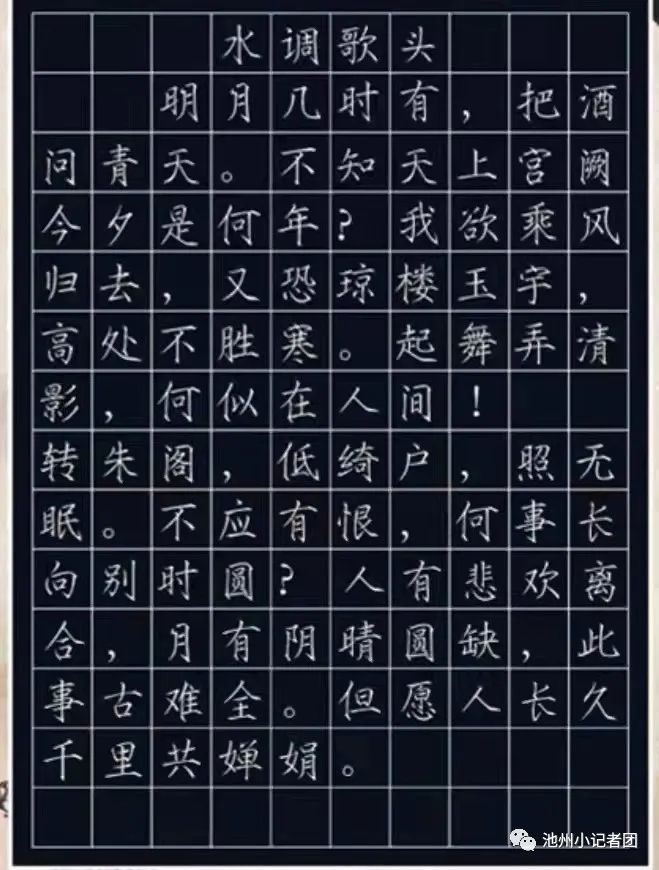 水调歌头
明月几时有，把酒
问青天。不知天上宫阙
今夕是何年？我欲乘风
归去，又恐琼楼玉宇，
高处不胜寒。起舞弄清
影，何似在人间！
转朱阁，低绮户，照无
眠。不应有恨，何事长
向别时圆？人有悲欢离
合，月有阴晴圆缺，此
事古难全。但愿人长久
千里共婵娟。
池州小记者团